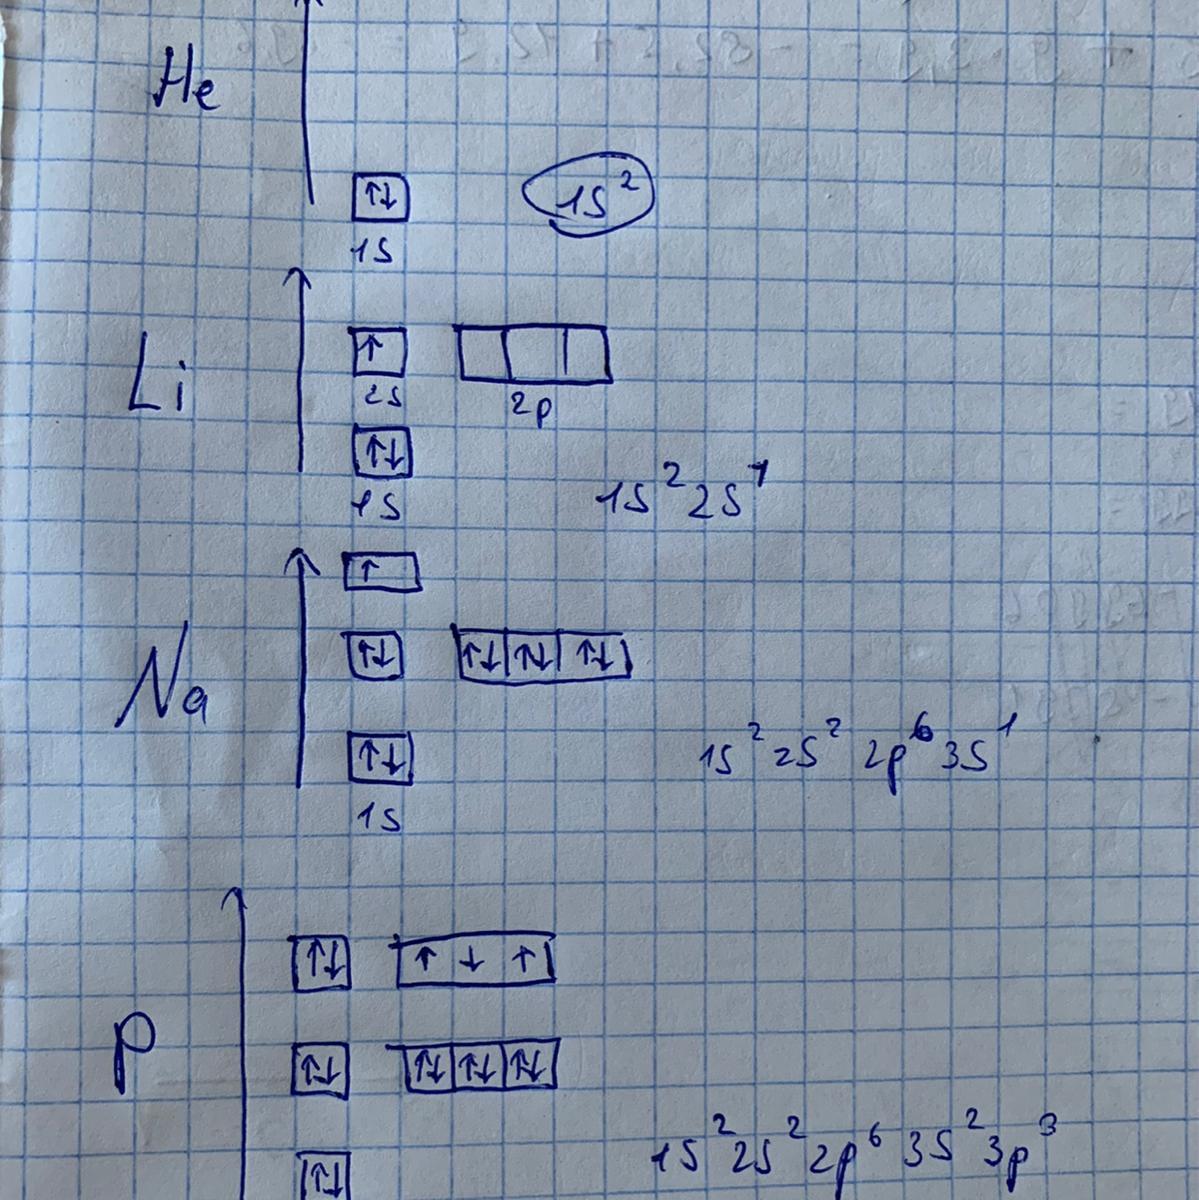 He
↑↓
1S 1S²
Li
↑
2S 2p
↑↓
1S 1S² 2S¹
↑
Na ↑↓ ↑↓ ↑↓ ↑↓
↑↓ 1S² 2S² 2p⁶ 3S¹
1S
↑↓ ↑ ↓ ↑
P ↑↓ ↑↓ ↑↓ ↑↓
↑↓ 1S² 2S² 2p⁶ 3S² 3p³